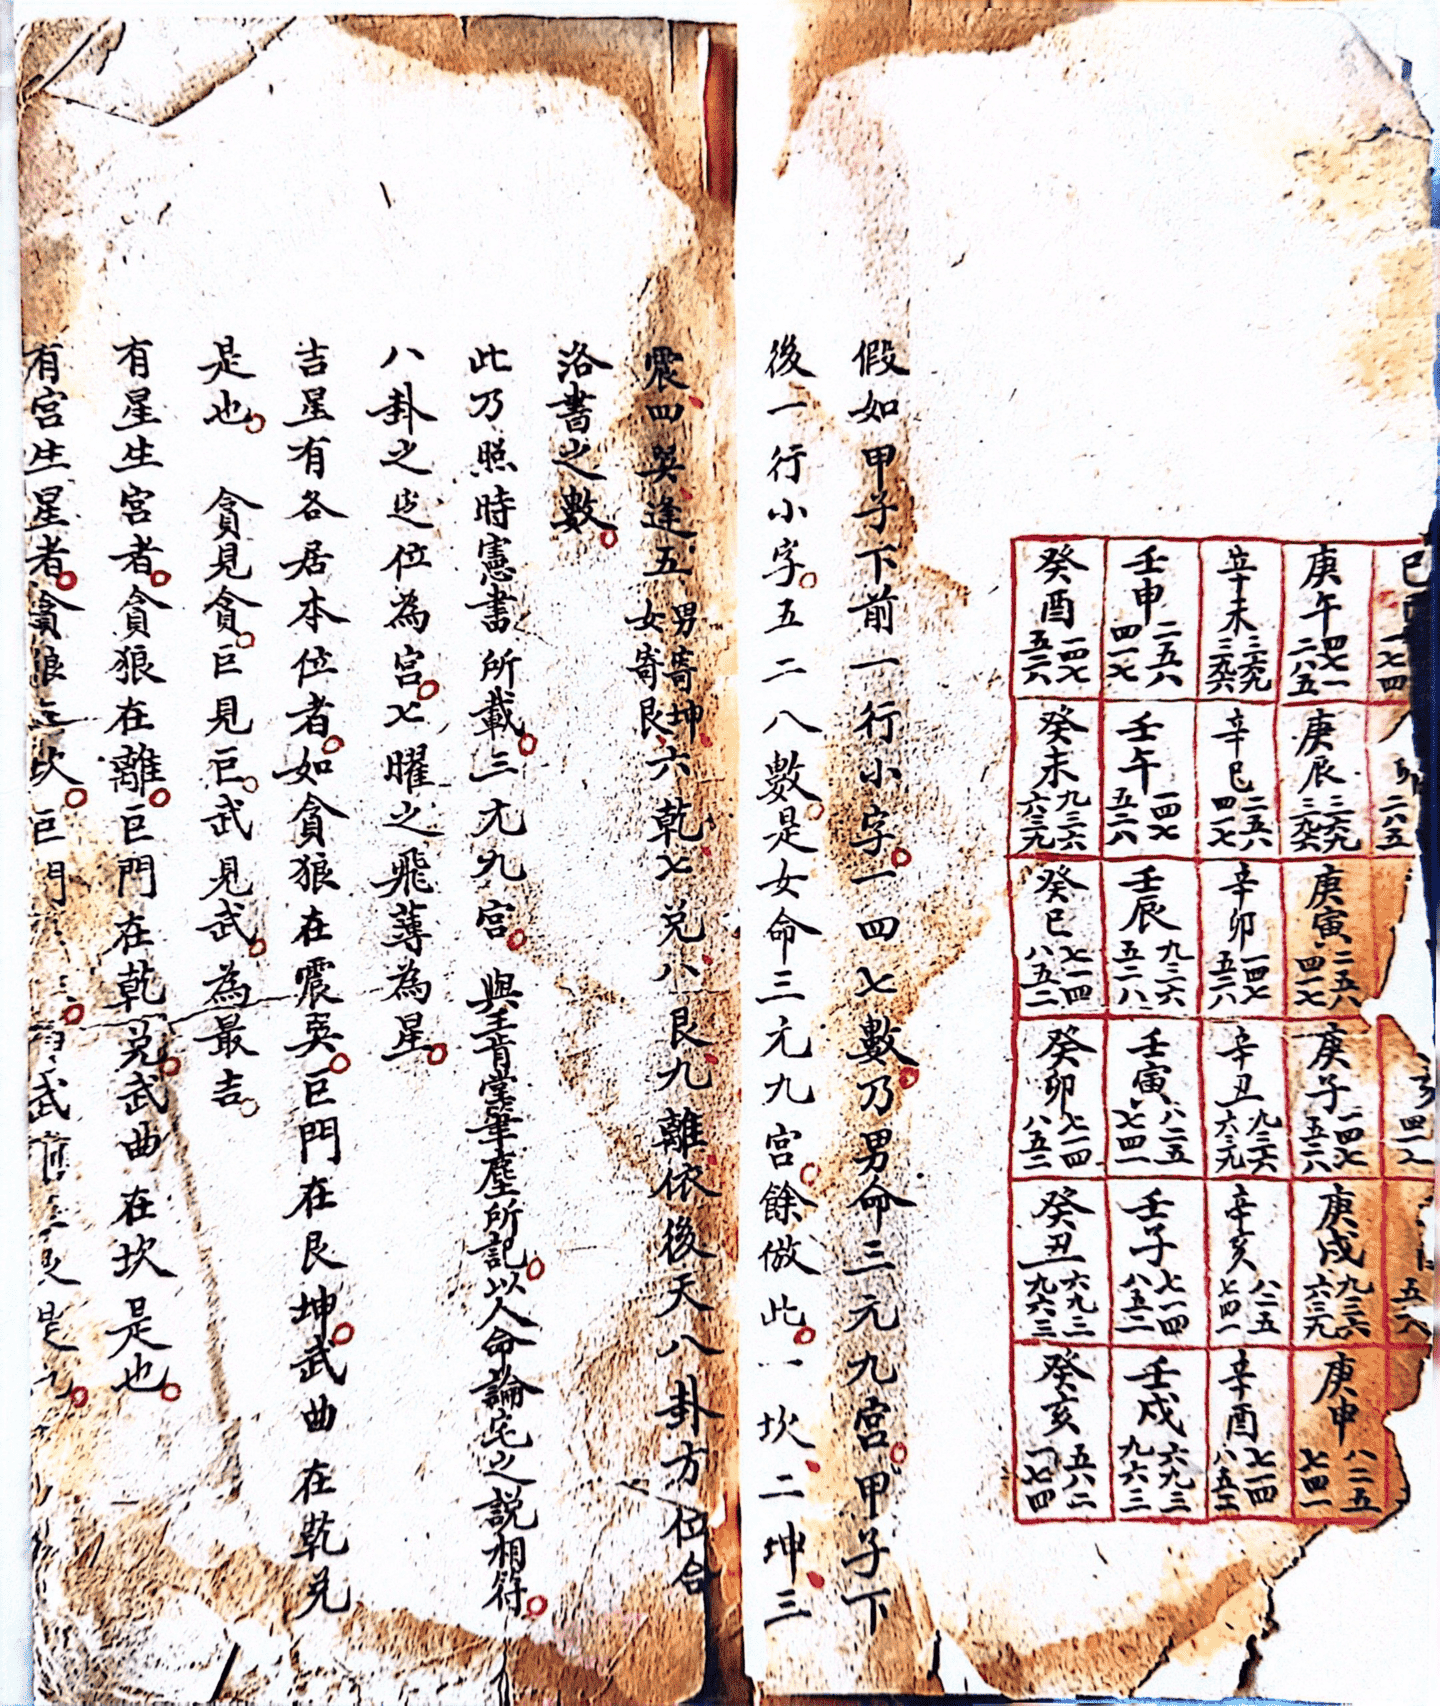 一七四
卯 二八五
庚午 四七一 二八五
庚辰 三六九 三九六
庚寅 二五八 四一七
庚子 一四七 五二八
庚戌 九三六 六三九
庚申 八二五 七四一
辛未 三六九 三九六
辛巳 二五八 四一七
辛卯 一四七 五二八
辛丑 九三六 六三九
辛亥 八二五 七四一
辛酉 七一四 八五二
壬申 二五八 四一七
壬午 一四七 五二八
壬辰 九三六 五二八
壬寅 八二五 七四一
壬子 七一四 八五二
壬戌 六九三 九六三
癸酉 一四七 五二八
癸未 九三六 六三九
癸巳 七一四 八五二
癸卯 七一四 八五二
癸丑 六九三 九六三
癸亥 五八二 一七四
假如甲子下前一行小字。一四七數。乃男命三元九宮。甲子下
後一行小字。五二八數。是女命三元九宮。餘倣此。一坎、二坤、三
震、四巽、逢五、男寄坤、女寄艮、六乾、七兌、八艮、九離、依後天八卦方位合
洛書之數。
此乃照時憲書所載。三尤九宮。與王肯堂筆塵所記。以人命論宅之說相符。
八卦之定位為宮。七曜之飛薄為星。
吉星有各居本位者。如貪狼在震巽。巨門在艮坤。武曲在乾兌
是也。貪見貪。巨見巨。武見武。為最吉。
有星生宮者。貪狼在離。巨門在乾兌。武曲在坎是也。
有宮生星者。貪狼在坎。巨門 武 艮是也。